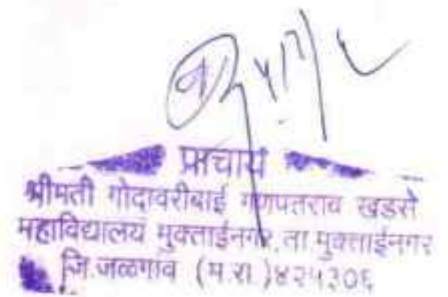 प्राचार्य
श्रीमती गोदावरीबाई गणपतराव खडसे
महाविद्यालय मुक्ताईनगर, ता मुक्ताईनगर
जि.जळगाव (म.रा.)४२५३०६